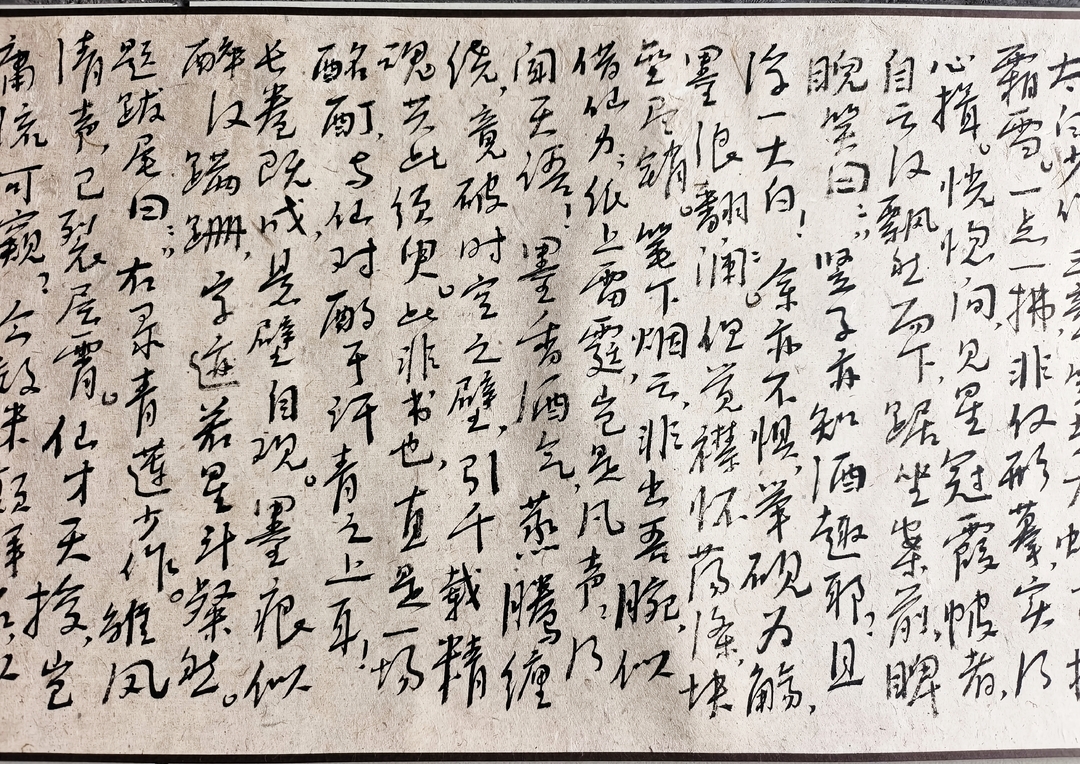 太白少作三章
霜雪。一点一拂非仅形摹,实乃
心揖。恍惚间,见星冠霞帔者,
自云汉飘然而下,踞坐案前,睥
睨笑曰:“竖子亦知酒趣耶?且
浮一大白!余亦不惧,举砚为觞,
墨浪翻澜”。但觉襟怀荡涤,块
垒尽销。笔下烟云,非出吾腕,似
借仙力;纸上雷霆,岂是凡声;乃
闻天语!墨香酒气,蒸腾缠
绕,竟破时空之壁,引千载精
魂共此须臾。此非书也,直是一场
酩酊,与仙对酌于汗青之上耳!
长卷既成,悬壁自观。墨痕似
醉汉蹒跚,字迹若星斗粲然。
题跋尾曰:“右录青莲少作。雏凤
清声,已裂层霄。仙才天授,岂
庸流可窥?今效米颠